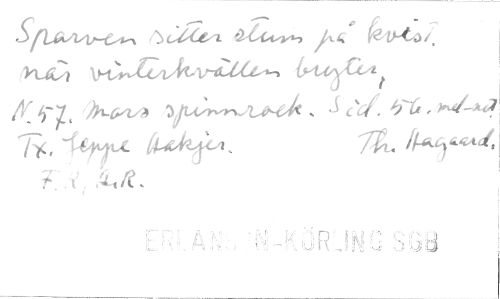 Sparven sitter stum på kvist.
när vinterkvällen bryter,
N. 57. Mors spinnrock. Sid. 56. mel-not.
Tx. Jeppe Aakjer. Th. Aagaard.
F.R, A.R.
ERLAN N-KÖRLING SGB